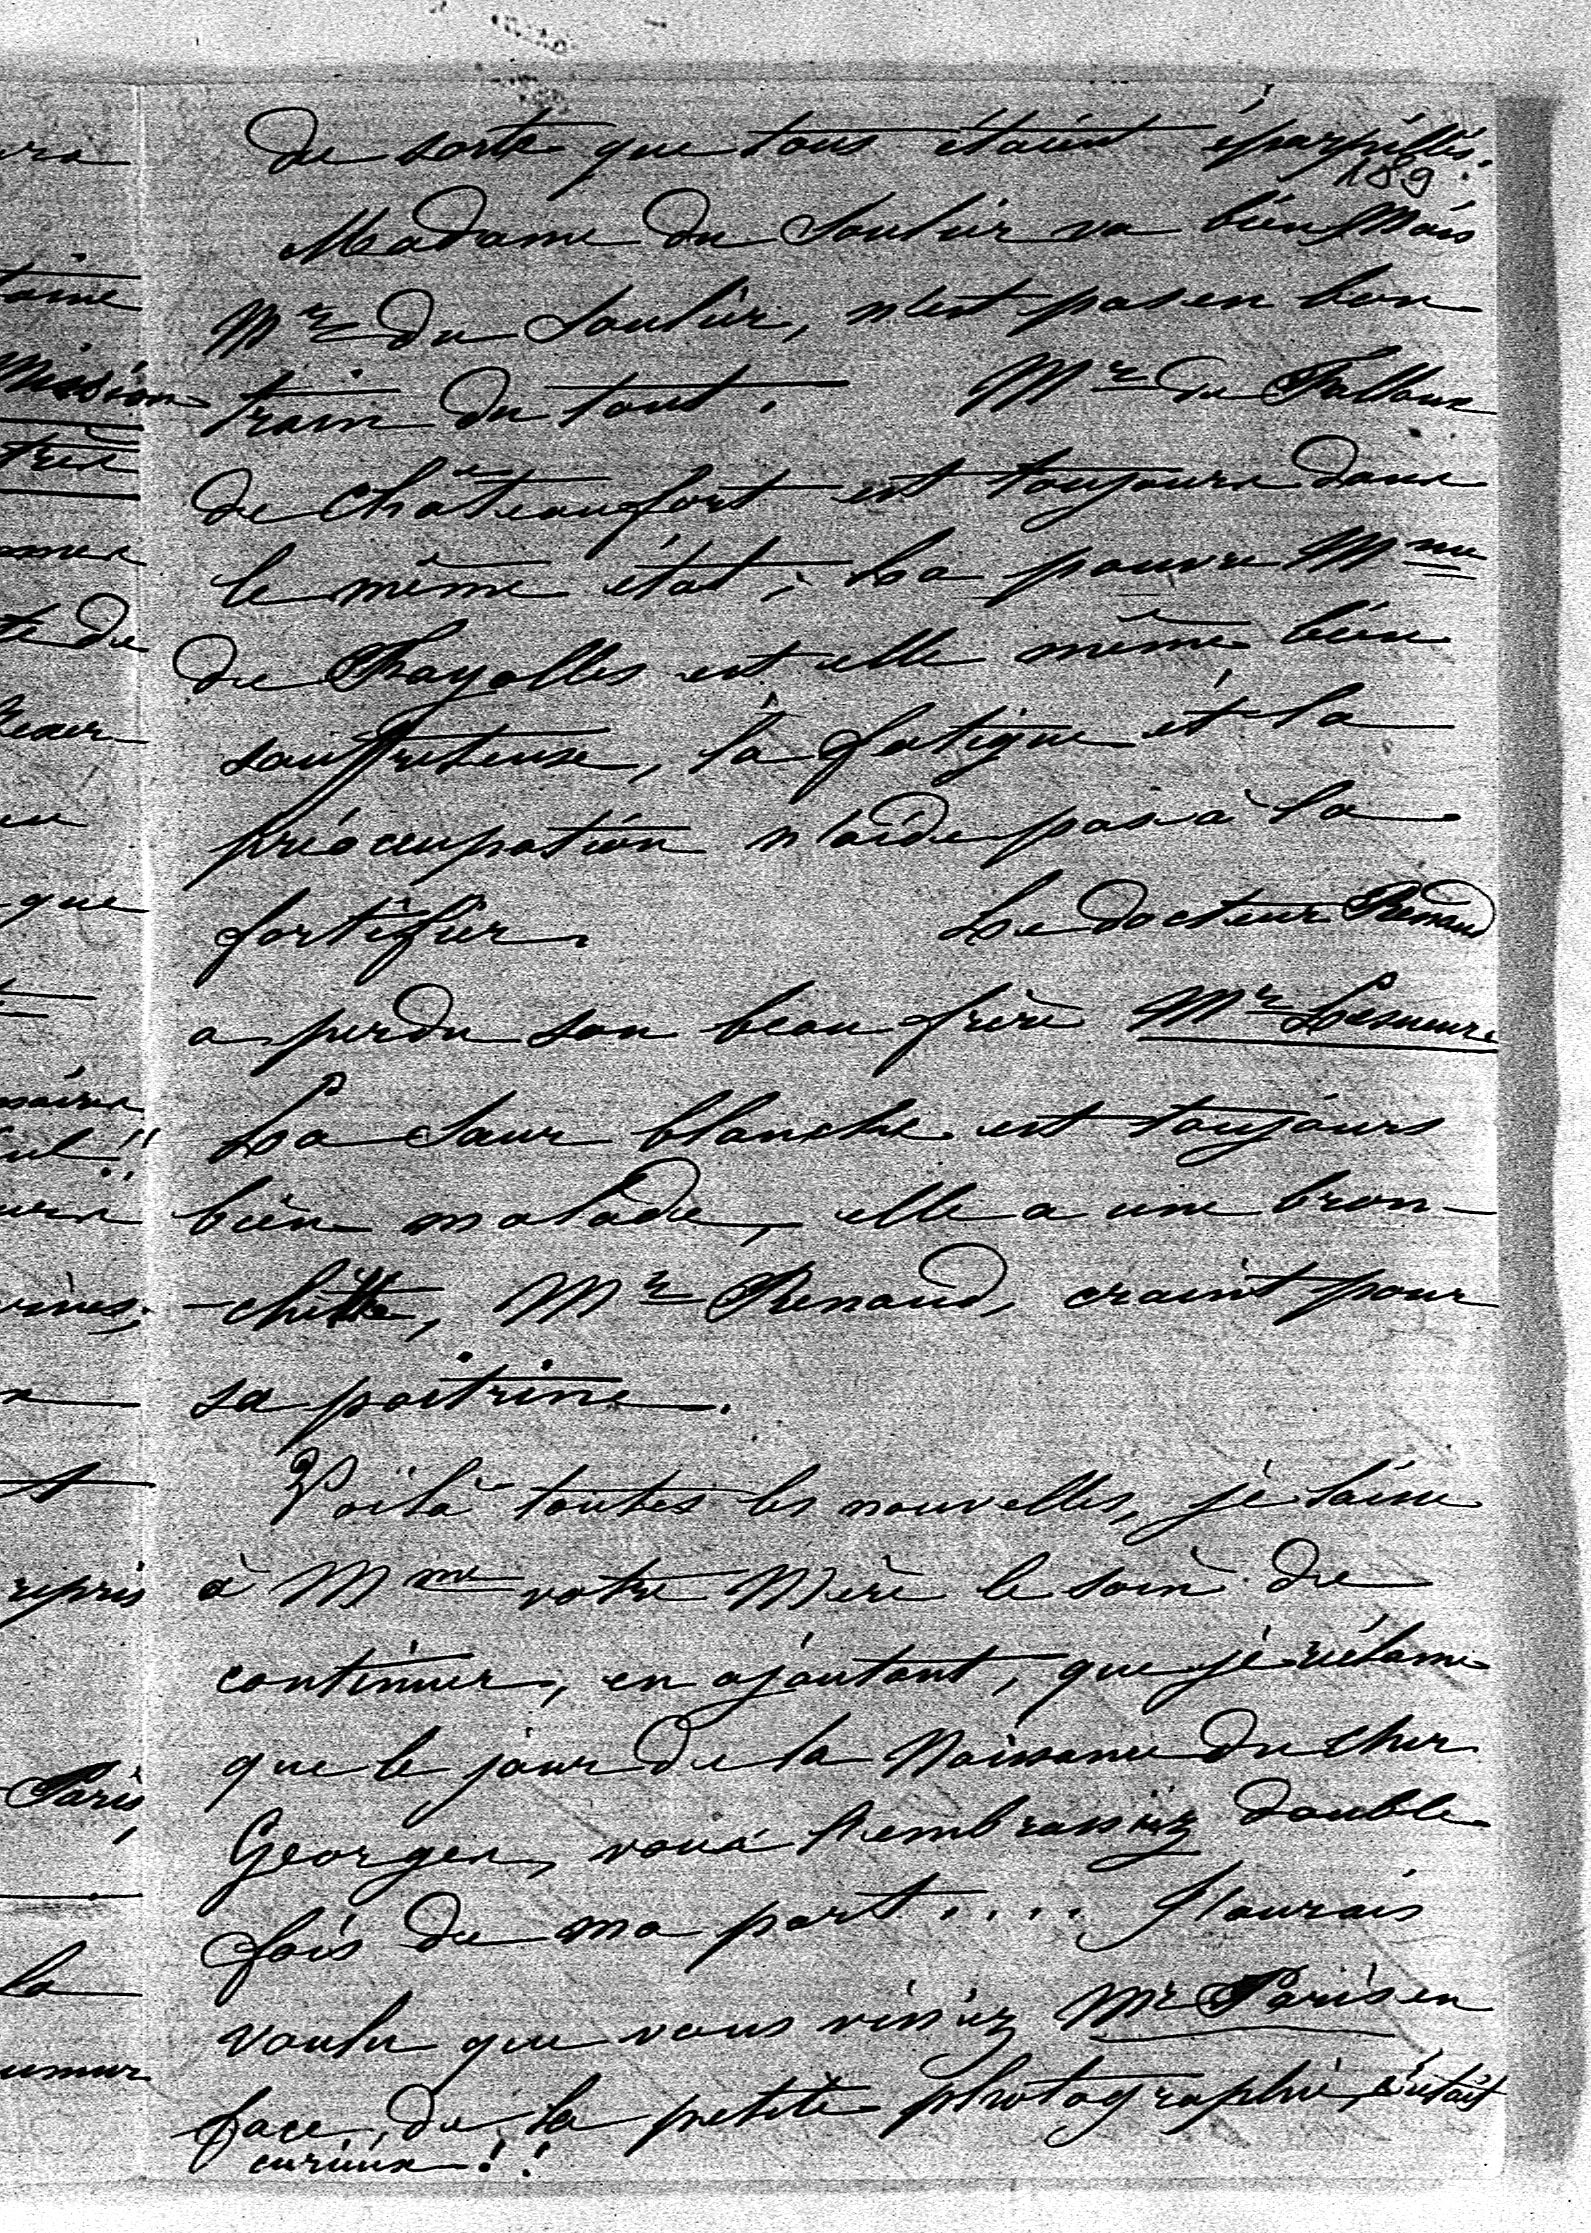 de sorte que tous étaient éparpillés.
189
Madame du Soulier va bien, Mais
Mr du Soulier, n'est pas en bon
train du tout. Mr de Falloux
de Châteaufort est toujours dans
le même état; La pauvre Mme
de Fayolles est elle même bien
souffreteuse, la fatigue et la
préoccupation n'aide pas à la
fortifier. Le docteur Renaud
a perdu son beau frère Mr
La Sœur blanche est toujours
bien malade, elle a une bron-
-chitte, Mr Renaud, craint pour
sa poitrine.
Voilà toutes les nouvelles, je laisse
à Mme votre Mère le soin de
continuer, en ajoutant, que je réclame
que le jour de la Naissance du cher
Georges, vous l'embrassiez double
fois de ma part.... J'aurais
voulu que vous vissiez Mr Paris en
face de la petite photographie, c'était
curieux!!
ura
taine
Mission
très
te de
que
rines,
repris
Paris,
la